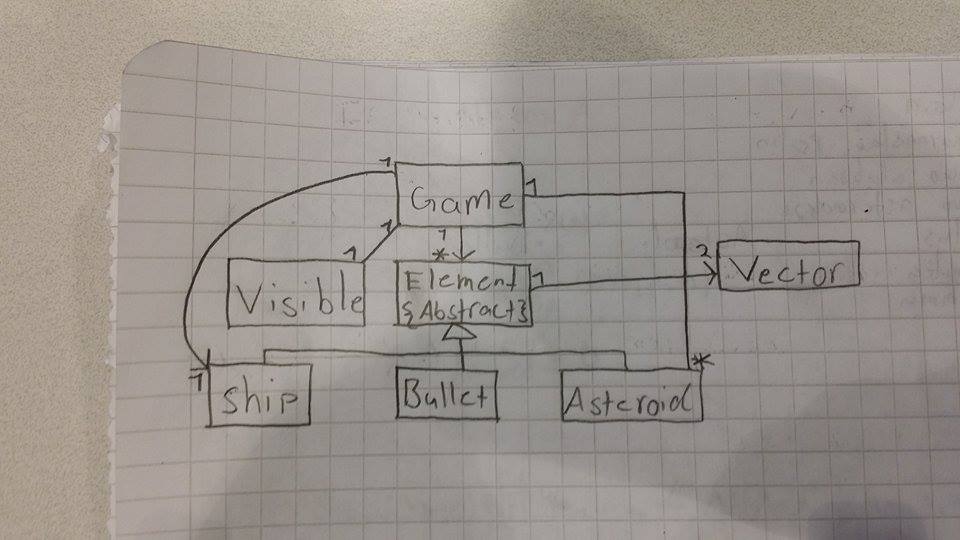 1
Game
1
1
1
1
*
2
Visible
Element
{Abstract}
1
Vector
1
*
Ship
Bullet
Asteroid